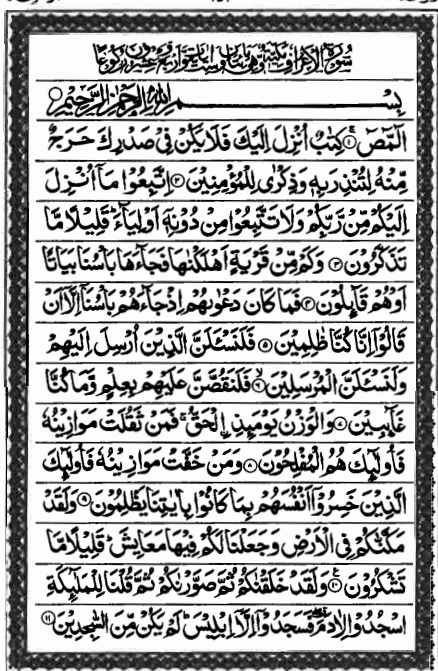 سُوْرَةُ الْاَعْرَافِ مَكِّيَّةٌ وَّهِيَ مِائَتَانِ وَسِتُّ اٰيَاتٍ وَّاَرْبَعٌ وَّعِشْرُوْنَ رُكُوْعًا
بِسْمِ اللّٰهِ الرَّحْمٰنِ الرَّحِيْمِ
الٓمّٓصٓ ۝۱ كِتٰبٌ اُنْزِلَ اِلَيْكَ فَلَا يَكُنْ فِيْ صَدْرِكَ حَرَجٌ
مِّنْهُ لِتُنْذِرَ بِهٖ وَذِكْرٰى لِلْمُؤْمِنِيْنَ ۝۲ اِتَّبِعُوْا مَآ اُنْزِلَ
اِلَيْكُمْ مِّنْ رَّبِّكُمْ وَلَا تَتَّبِعُوْا مِنْ دُوْنِهٖٓ اَوْلِيَآءَ ؕ قَلِيْلًا مَّا
تَذَكَّرُوْنَ ۝۳ وَكَمْ مِّنْ قَرْيَةٍ اَهْلَكْنٰهَا فَجَآءَهَا بَاْسُنَا بَيَاتًا
اَوْ هُمْ قَآئِلُوْنَ ۝۴ فَمَا كَانَ دَعْوٰىهُمْ اِذْ جَآءَهُمْ بَاْسُنَآ اِلَّآ اَنْ
قَالُوْٓا اِنَّا كُنَّا ظٰلِمِيْنَ ۝۵ فَلَنَسْـَٔلَنَّ الَّذِيْنَ اُرْسِلَ اِلَيْهِمْ
وَلَنَسْـَٔلَنَّ الْمُرْسَلِيْنَ ۝۶ فَلَنَقُصَّنَّ عَلَيْهِمْ بِعِلْمٍ وَّمَا كُنَّا
غَآئِبِيْنَ ۝۷ وَالْوَزْنُ يَوْمَئِذِ ۨالْحَقُّ ۚ فَمَنْ ثَقُلَتْ مَوَازِيْنُهٗ
فَاُولٰٓئِكَ هُمُ الْمُفْلِحُوْنَ ۝۸ وَمَنْ خَفَّتْ مَوَازِيْنُهٗ فَاُولٰٓئِكَ
الَّذِيْنَ خَسِرُوْٓا اَنْفُسَهُمْ بِمَا كَانُوْا بِاٰيٰتِنَا يَظْلِمُوْنَ ۝۹ وَلَقَدْ
مَكَّنّٰكُمْ فِي الْاَرْضِ وَجَعَلْنَا لَكُمْ فِيْهَا مَعَايِشَ ؕ قَلِيْلًا مَّا
تَشْكُرُوْنَ ۝۱۰ وَلَقَدْ خَلَقْنٰكُمْ ثُمَّ صَوَّرْنٰكُمْ ثُمَّ قُلْنَا لِلْمَلٰٓئِكَةِ
اسْجُدُوْا لِاٰدَمَ ۖ فَسَجَدُوْٓا اِلَّآ اِبْلِيْسَ ؕ لَمْ يَكُنْ مِّنَ السّٰجِدِيْنَ ۝۱۱